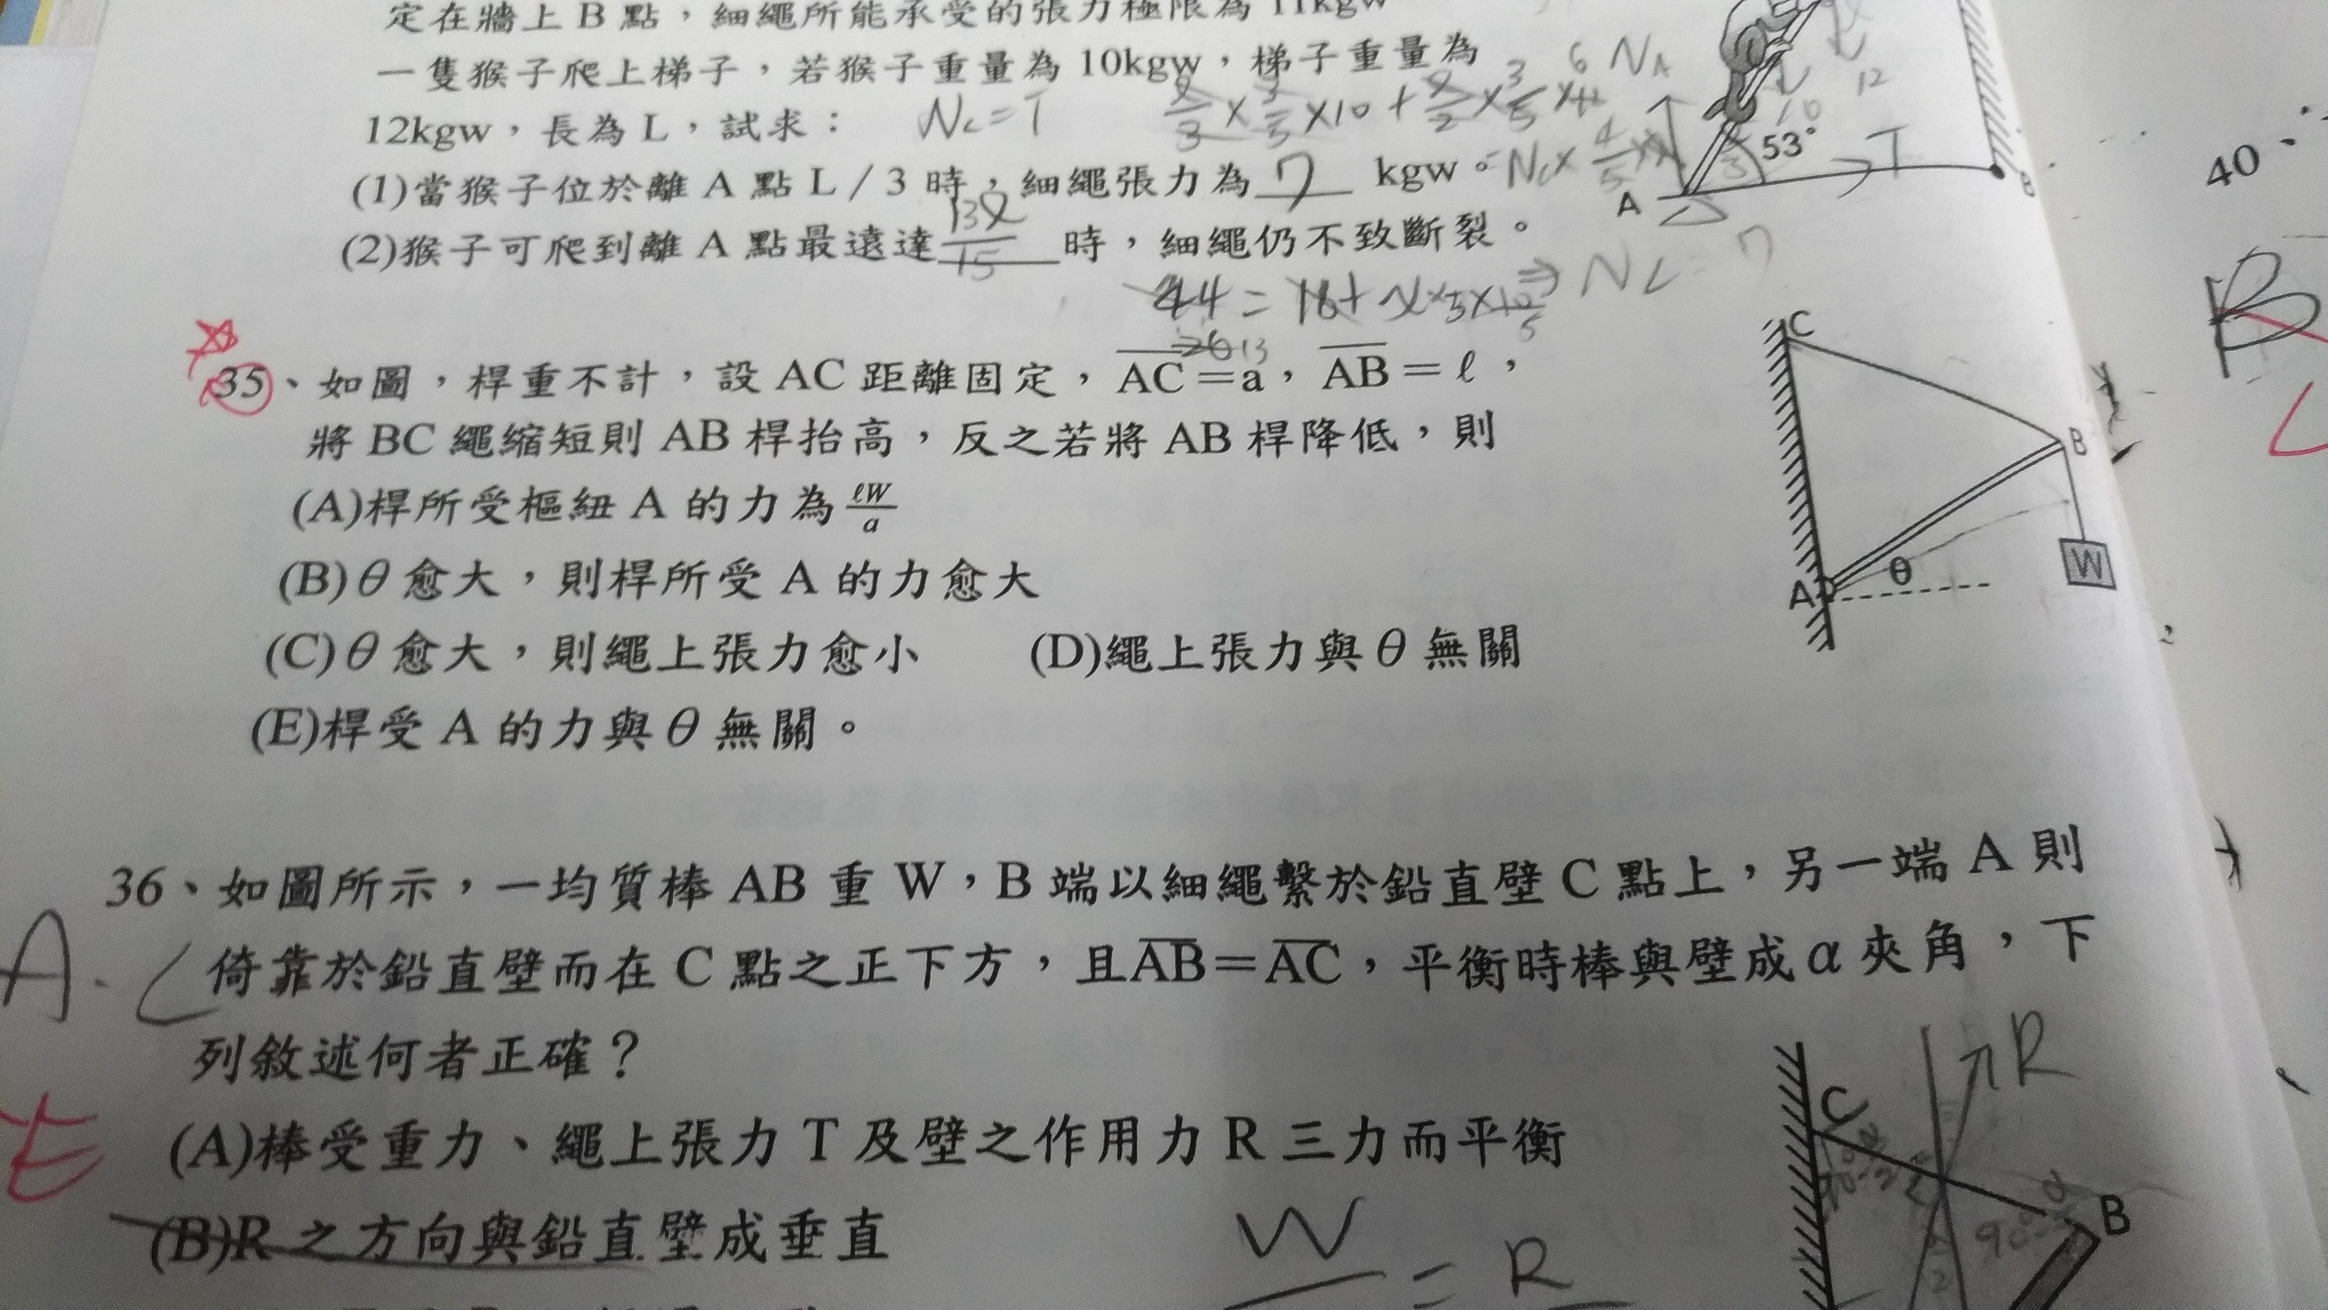 定在牆上 B 點，細繩所能承受的張力極限為 11kgw
一隻猴子爬上梯子，若猴子重量為 10kgw，梯子重量為
12kgw，長為 L，試求：
(1)當猴子位於離 A 點 L / 3 時，細繩張力為 7 kgw。
(2)猴子可爬到離 A 點最遠達 時，細繩仍不致斷裂。
N_L = T
N_A
12
10
53°
T
A
B
⇒ N_L = 7
35、如圖，桿重不計，設 AC 距離固定，AC＝a，AB＝ℓ，
將 BC 繩縮短則 AB 桿抬高，反之若將 AB 桿降低，則
(A)桿所受樞紐 A 的力為 ℓW/a
(B)θ愈大，則桿所受 A 的力愈大
(C)θ愈大，則繩上張力愈小 (D)繩上張力與θ無關
(E)桿受 A 的力與θ無關。
C
B
A
θ
W
36、如圖所示，一均質棒 AB 重 W，B 端以細繩繫於鉛直壁 C 點上，另一端 A 則
倚靠於鉛直壁而在 C 點之正下方，且AB＝AC，平衡時棒與壁成α夾角，下
列敘述何者正確？
(A)棒受重力、繩上張力 T 及壁之作用力 R 三力而平衡
(B)R 之方向與鉛直壁成垂直
A.
E
R
C
B
W
= R
40、
B